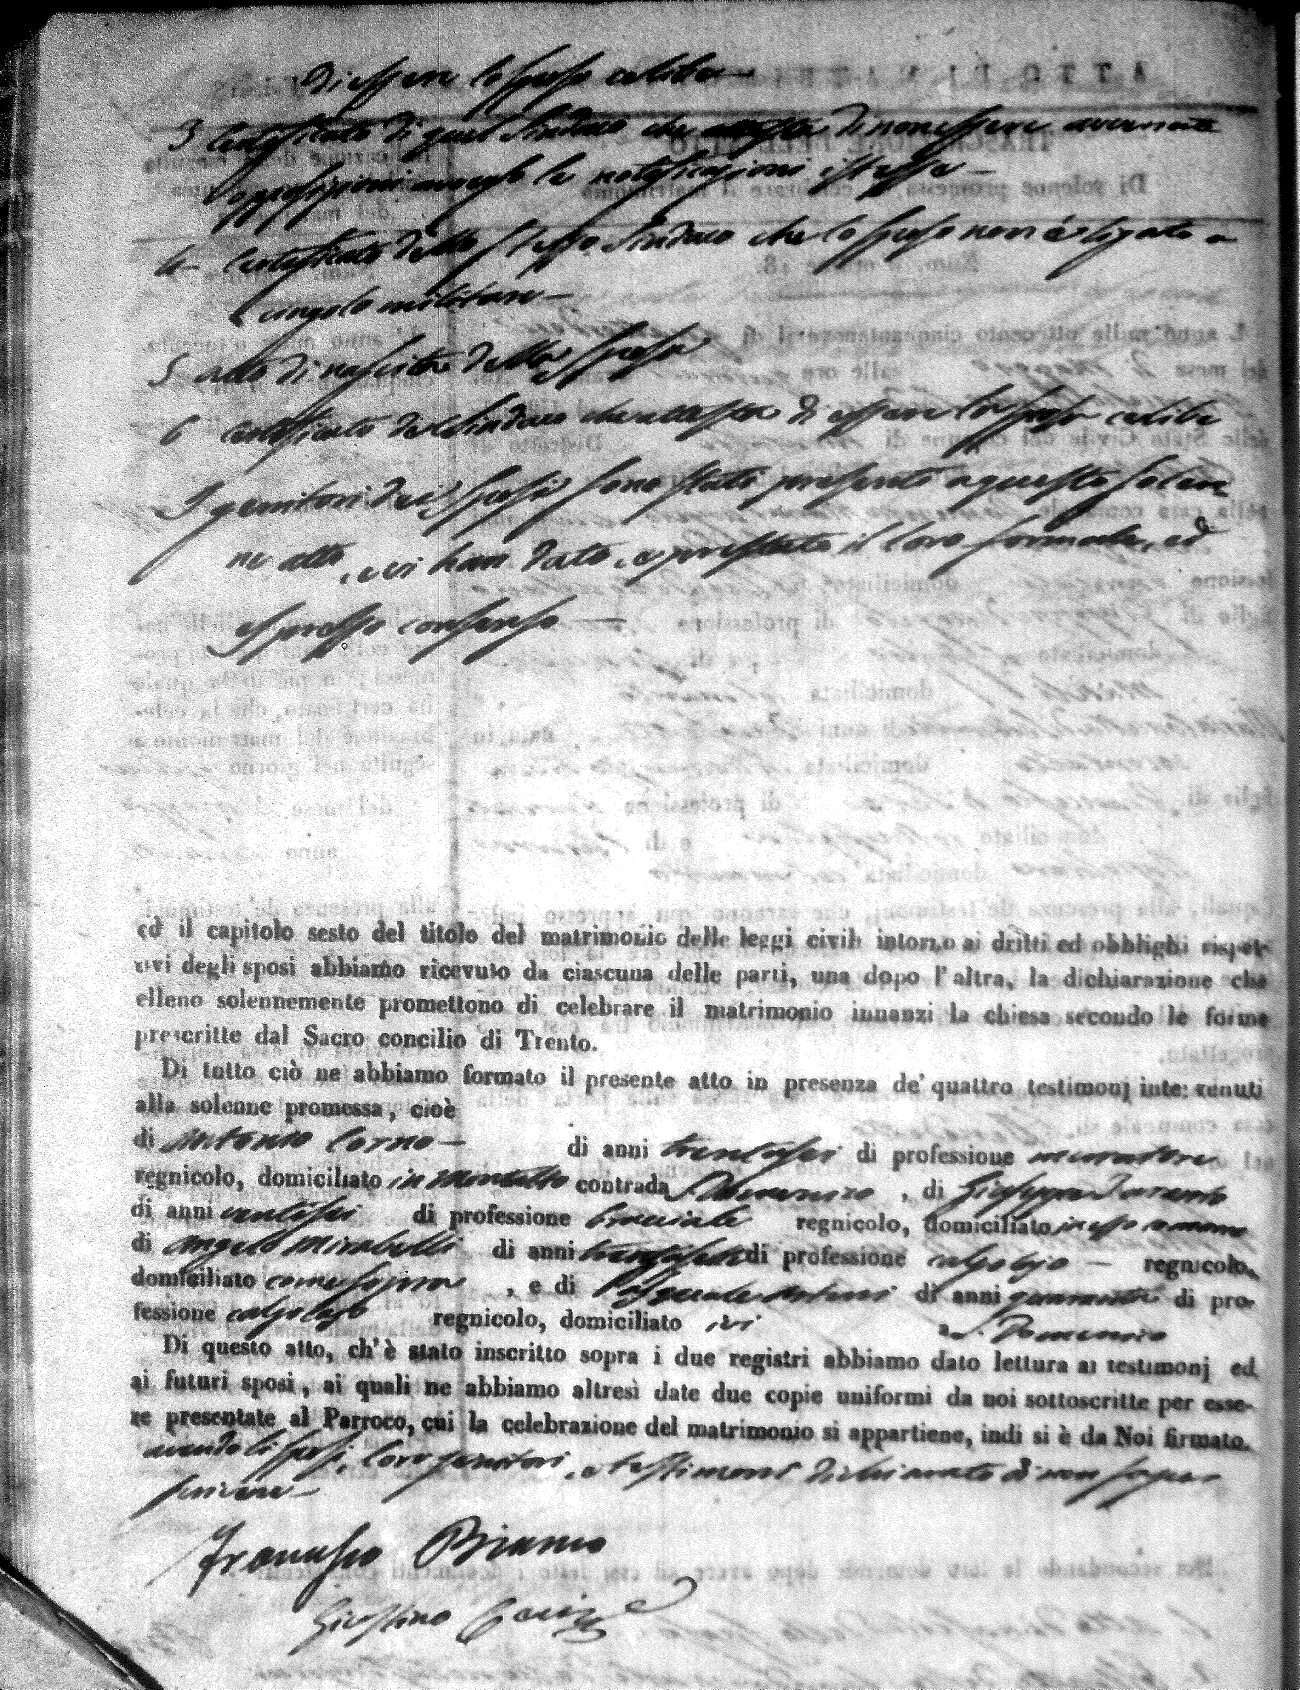 di essere lo sposo celibe
3 Certificato di quel Sindaco che attesta di non essere avvenute
opposizioni avverso le notificazioni istesse
4 Certificato dello stesso Sindaco che lo sposo non è ligato a
vingolo militare
5 atto di nascita della sposa
6 certificato del Sindaco che attesta di essere lo sposo celibe
I genitori dei sposi sono stati presenti a questo solen
ne atto, e vi han dato, e prestato il loro formale, ed
espresso consenso
ed il capitolo sesto del titolo del matrimonio delle leggi civili intorno ai dritti ed obblighi rispet-
tivi degli sposi abbiamo ricevuto da ciascuna delle parti, una dopo l'altra, la dichiarazione che
elleno solennemente promettono di celebrare il matrimonio innanzi la chiesa secondo le forme
prescritte dal Sacro concilio di Trento.
Di tutto ciò ne abbiamo formato il presente atto in presenza de' quattro testimonj intervenuti
alla solenne promessa, cioè
di Antonio Corno di anni trentasei di professione muratore
regnicolo, domiciliato in contrada S. Domenico, di Giuseppe
di anni ventisei di professione bracciale regnicolo, domiciliato in esso comune
di Angelo Mirabelli di anni trentasette di professione calzolajo regnicolo,
domiciliato come sopra, e di Pasquale di anni quaranta di pro-
fessione calzolajo regnicolo, domiciliato ivi S. Domenico
Di questo atto, ch'è stato inscritto sopra i due registri abbiamo dato lettura ai testimonj ed
ai futuri sposi, ai quali ne abbiamo altresì date due copie uniformi da noi sottoscritte per esse-
re presentate al Parroco, cui la celebrazione del matrimonio si appartiene, indi si è da Noi firmato.
avendo li sposi, loro genitori, e testimoni dichiarato di non saper
scrivere
Francesco Bianco
Giustino